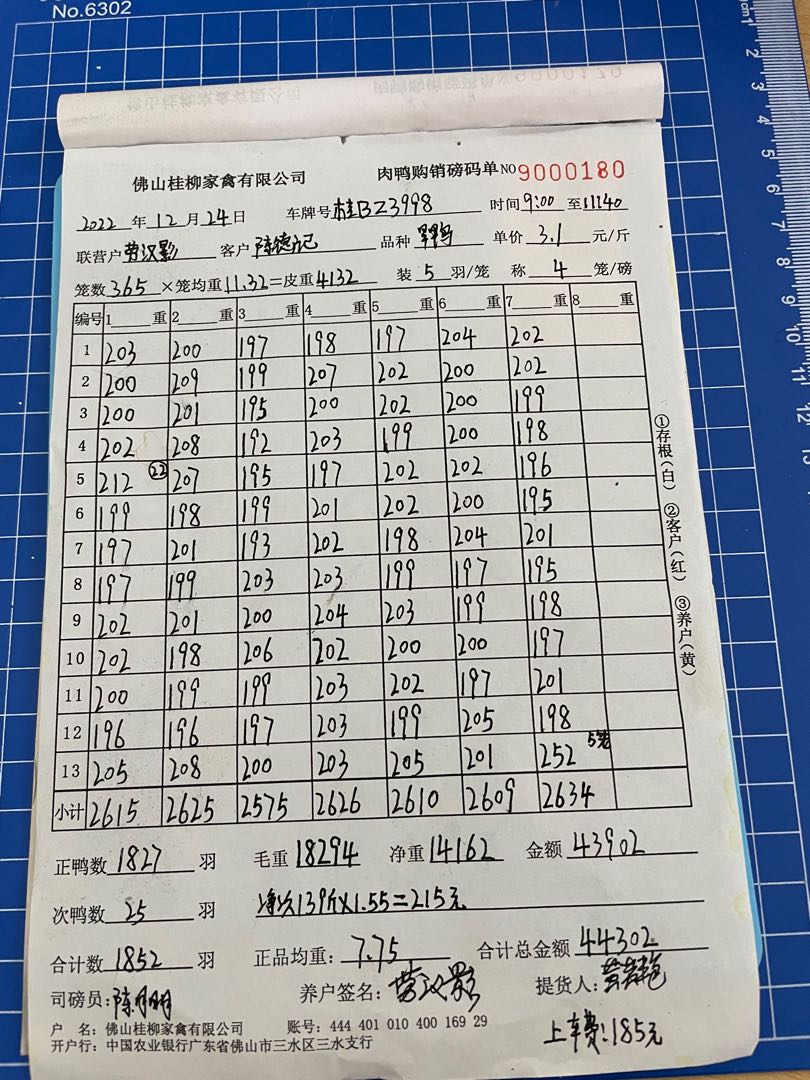 No.6302
佛山桂柳家禽有限公司 肉鸭购销磅码单 NO 9000180
2022 年 12 月 24 日 车牌号 桂BZ3998 时间 9:00 至 11:40
联营户 劳汉影 客户 陈德记 品种 单价 3.1 元/斤
笼数 365 ×笼均重 11.32 =皮重 4132 装 5 羽/笼 称 4 笼/磅
编号 1 重 2 重 3 重 4 重 5 重 6 重 7 重 8 重
1 203 200 197 198 197 204 202
2 200 209 199 207 202 200 202
3 200 201 195 200 202 200 199
4 202 208 192 203 199 200 198
5 212 22 207 195 197 202 202 196
6 199 198 199 201 202 200 195
7 197 201 193 202 198 204 201
8 197 199 203 203 199 197 195
9 202 201 200 204 203 199 198
10 202 198 206 202 200 200 197
11 200 199 199 203 202 197 201
12 196 196 197 203 199 205 198
13 205 208 200 203 205 201 252 5笼
小计 2615 2625 2575 2626 2610 2609 2634
①存根(白) ②客户(红) ③养户(黄)
正鸭数 1827 羽 毛重 18294 净重 14162 金额 43902
次鸭数 25 羽 净次139斤×1.55=215元
合计数 1852 羽 正品均重: 7.75 合计总金额 44302
司磅员: 陈月明 养户签名: 劳汉影 提货人:
户 名: 佛山桂柳家禽有限公司 账号: 444 401 010 400 169 29
开户行: 中国农业银行广东省佛山市三水区三水支行
上车费:185元